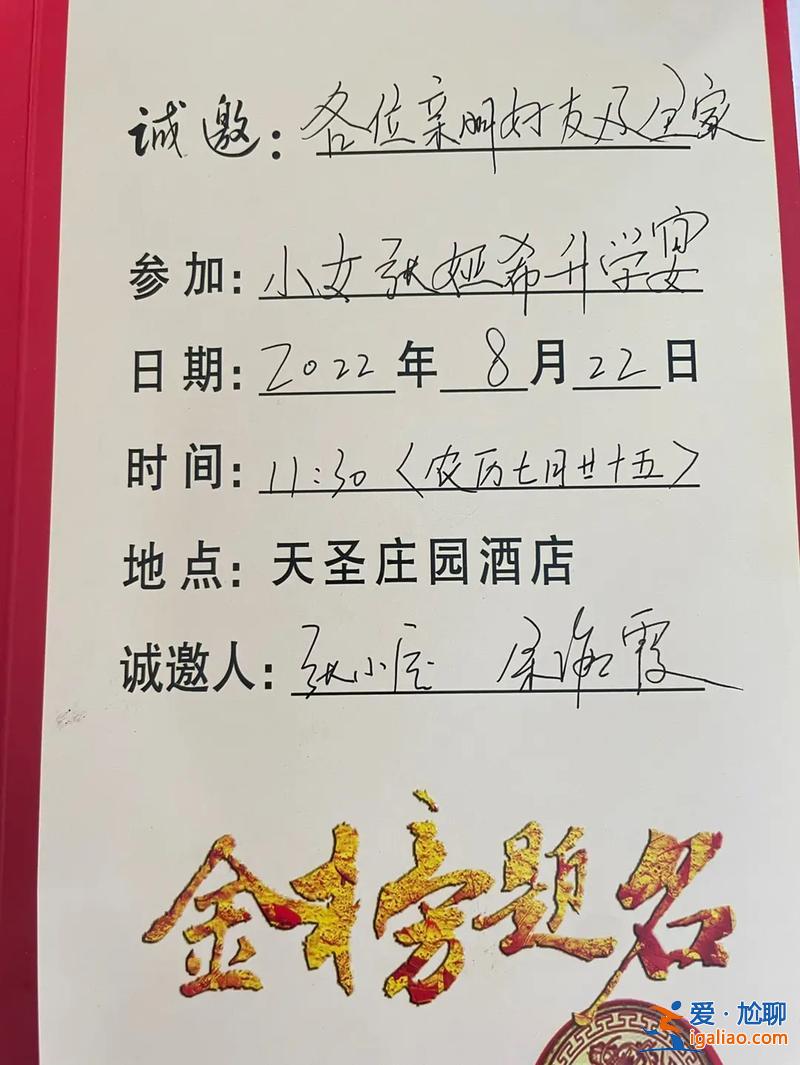 诚邀：各位亲朋好友及全家
参加：小女张娅希升学宴
日期：2022年8月22日
时间：11:30〈农历七月廿十五〉
地点：天圣庄园酒店
诚邀人：张小 海霞
金榜题名
爱·尬聊
igaliao.com